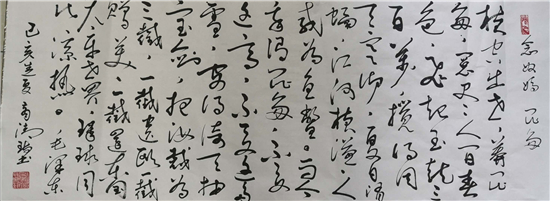 念奴娇 昆仑
横空出世，莽昆
仑，阅尽人间春
色。飞起玉龙三
百万，搅得周
天寒彻。夏日消
溶，江河横溢，人
或为鱼鳖。而今
我谓昆仑，不要
这高，不要这多
雪，安得倚天抽
宝剑，把汝裁为
三截，一截遗欧，一截
赠美，一截还东国。
太平世界，环球同
此凉热。毛泽东
己亥 夏 书